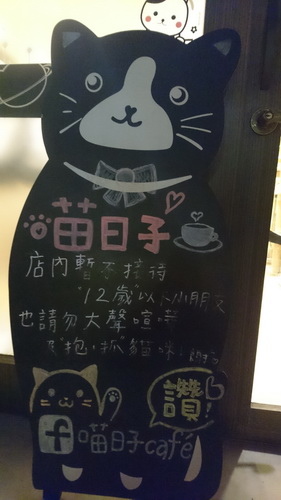 喵日子
店內暫不接待
"12歲"以下小朋友
也請勿大聲喧嘩
及"抱、抓"貓咪,
讚!
f 喵日子café